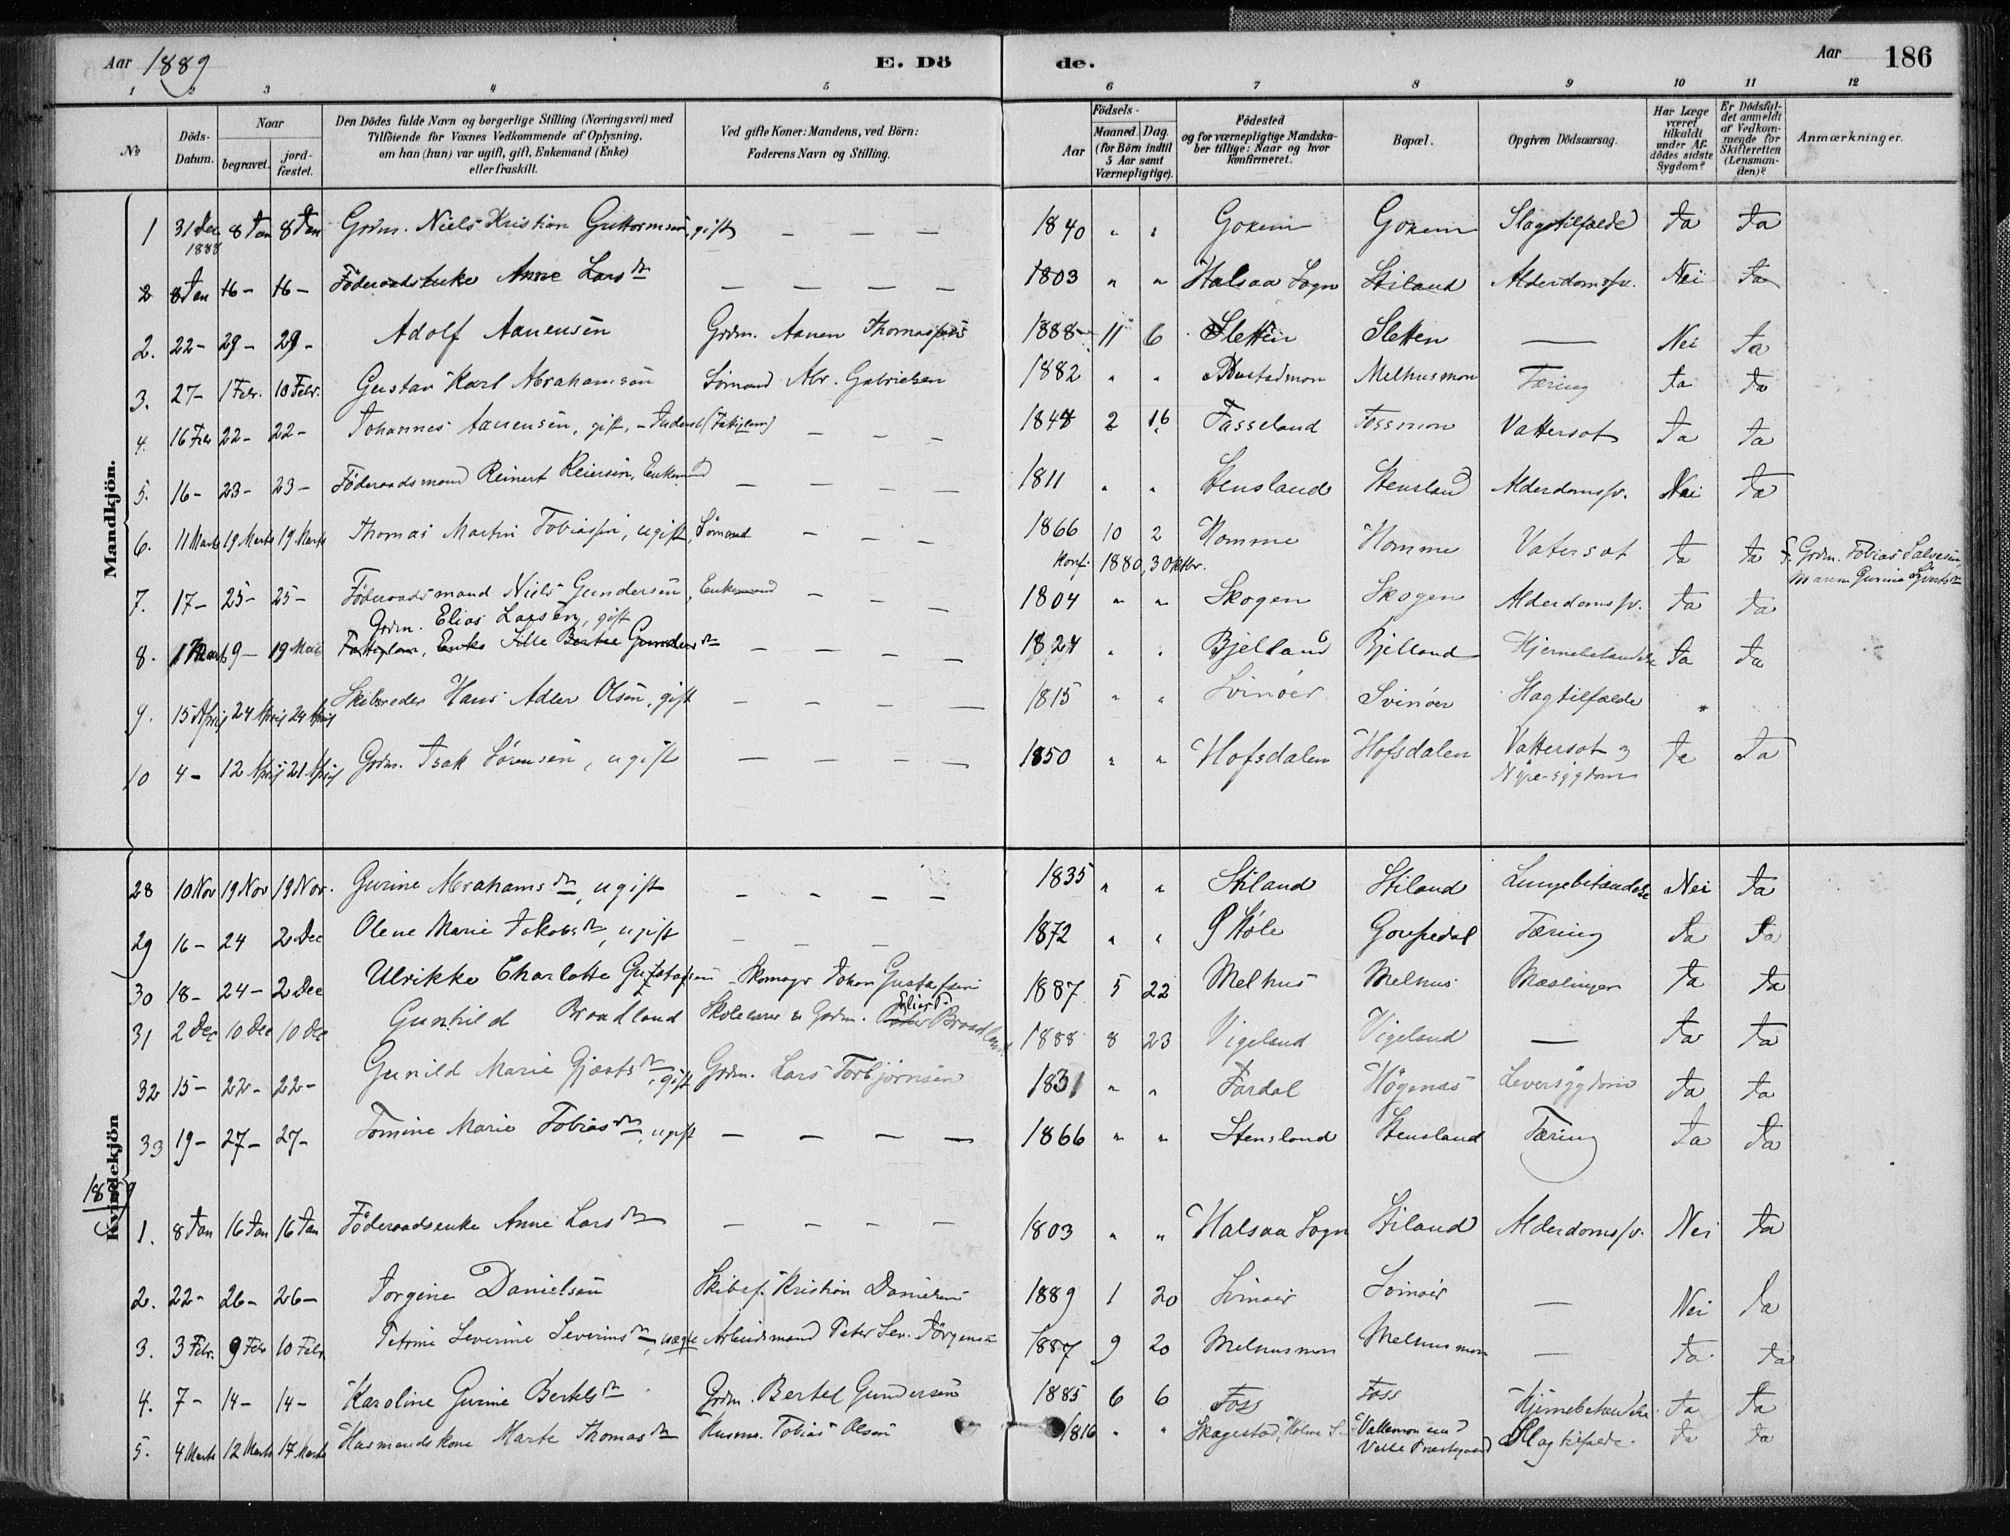 Aar 1889 E. Dö de. Aar 186
1 2 3 4 5 6 7 8 9 10 11 12
№ Döds-Datum. Naar begravet. jordfæstet. Den Dödes fulde Navn og borgerlige Stilling (Næringsvei) med Tilföiende for Voxnes Vedkommende af Oplysning, om han (hun) var ugift, gift, Enkemand (Enke) eller fraskilt. Ved gifte Koner: Mandens, ved Börn: Faderens Navn og Stilling. Aar Födsels- Maaned. Dag. (for Börn indtil 5 Aar samt Værnepligtige). Födested og for værnepligtige Mandskaber tillige: Naar og hvor Konfirmeret. Bopæl. Opgiven Dödsaarsag. Har Læge været tilkaldt under Afdödes sidste Sygdom? Er Dödsfaldet anmeldt af Vedkommende for Skifteretten (Lensmanden)? Anmærkninger.
Mandkjön.
1 31 Dec 1888 8 Jan 8 Jan Grdm. Niels Kristian Guttormsen, gift — — — 1840 " " Goxem Goxem Slagtilfælde Ja Ja
2 8 Jan 16 - 16 - Föderaadsenke Anne Larsdr — — — — 1803 " " Halsaa Sogn Stiland Alderdomssv. Nei Ja
2. 22 - 29 - 29 - Adolf Aanensen Grdm. Aanen Thomassen 1888 11 6 Sletten Sletten — Nei Ja
3. 27 - 1 Febr. 10 Febr. Gustav Karl Abrahamsen Sömand Abr. Gabrielsen 1882 " " Melhusmon Tæring Ja Ja
4. 16 Febr 22 - 22 - Johannes Aanensen, gift, - Inderst — — — 1848 2 16 Fasseland Fossmon Vattersot Ja Ja
5. 16 - 23 - 23 - Föderaadsmand Reinert Reiersen, Enkemand — — — — 1811 " " Stensland Stensland Alderdomssv. Nei Ja
6. 11 Marts 19 Marts 19 Marts Thomas Martin Tobiassen, ugift, Sömand — — — 1866 10 2 Homme Homme Vatersot Ja Ja F. Grdm. Tobias Salvesen,
Konf. 1880, 3 Oktbr. Maren Gurine
7. 17 - 25 - 25 - Föderaadsmand Niels Gundersen, Enkemand — — — 1804 " " Skogen Skogen Alderdomssv. Ja Ja
Grdm. Elias Larsen, gift
8. 1 Marts 9 - 19 Mai Fattiglem, Enke Sille Bertea Gundersdr — — — — 1824 " " Bjelland Bjelland Hjernebetændelse Ja Ja
9. 15 April 24 April 24 April Skibsreder Hans Adler Olsen, gift — — — — 1815 " " Svinöer Svinöer Slagtilfælde "
10 4 - 12 April 21 April Grdm. Isak Sörensen, ugift — — — — 1850 " " Hofsdalen Hofsdalen Vattersot og Ja Ja
Nyre-sygdom
Kvindekjön
28 10 Nov 19 Nov 19 Nov. Gurine Abrahamsdr, ugift — — — — 1835 " " Stiland Stiland Lungebetændelse Nei Ja
29 16 - 24 2 Dec Olene Marie Jakobsdr, ugift — — — — 1872 " " Höle Tæring Ja Ja
30 18 - 24 - 2 Dec Ulrikke Charlotte Gustafsen Skomagr Johan Gustafsen 1887 5 22 Melhus Melhus Mæslinger Ja Ja
31 2 Dec 10 Dec 10 Dec Gunhild Braadland Skolelærer & Grdm. Braadland 1888 8 23 Vigeland Vigeland — Ja Ja
32 15 - 22 - 22 - Gunild Marie Gjærtsdr, gift Grdm. Lars Torbjörnsen 1831 " " Fardal Högenæs Leversygdom Ja Ja
33 19 - 27 - 27 - Tomine Marie Tobiasdr, ugift — — — — 1866 " " Stensland Stensland Tæring Ja Ja
1889
1. 8 Jan 16 Jan 16 Jan Föderaadsenke Anne Larsdr — — — — 1803 " " Halsaa Sogn Stiland Alderdomssv. Nei Ja
2. 22 - 26 - 26 - Jorgine Danielsen Skibsf. Kristian Danielsen 1889 1 20 Svinöer Svinöer — Nei Ja
3. 3 Febr. 9 Febr 10 Febr. Petrine Severine Severinsdr, uægte Arbeidsmand Peter Sev. Jörgensen 1887 9 20 Melhusmon Melhusmon — Ja Ja
4. 7 - 14 - 14 - Karoline Gurine Bertelsdr Grdm. Bertel Gundersen 1885 6 6 Foss Foss Hjernebetændelse Ja Ja
5. 4 Marts 12 Marts 17 Marts Husmandskone Marte Thomasdr Husm. Tobias Olsen 1816 " " Skagestad, Holme S. Vallemon
Valle Præstegaard Slagtilfælde. Ja Ja